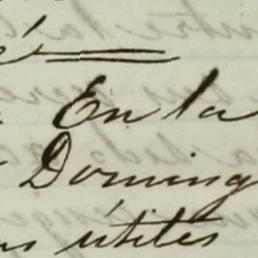 En la
Doming
útiles